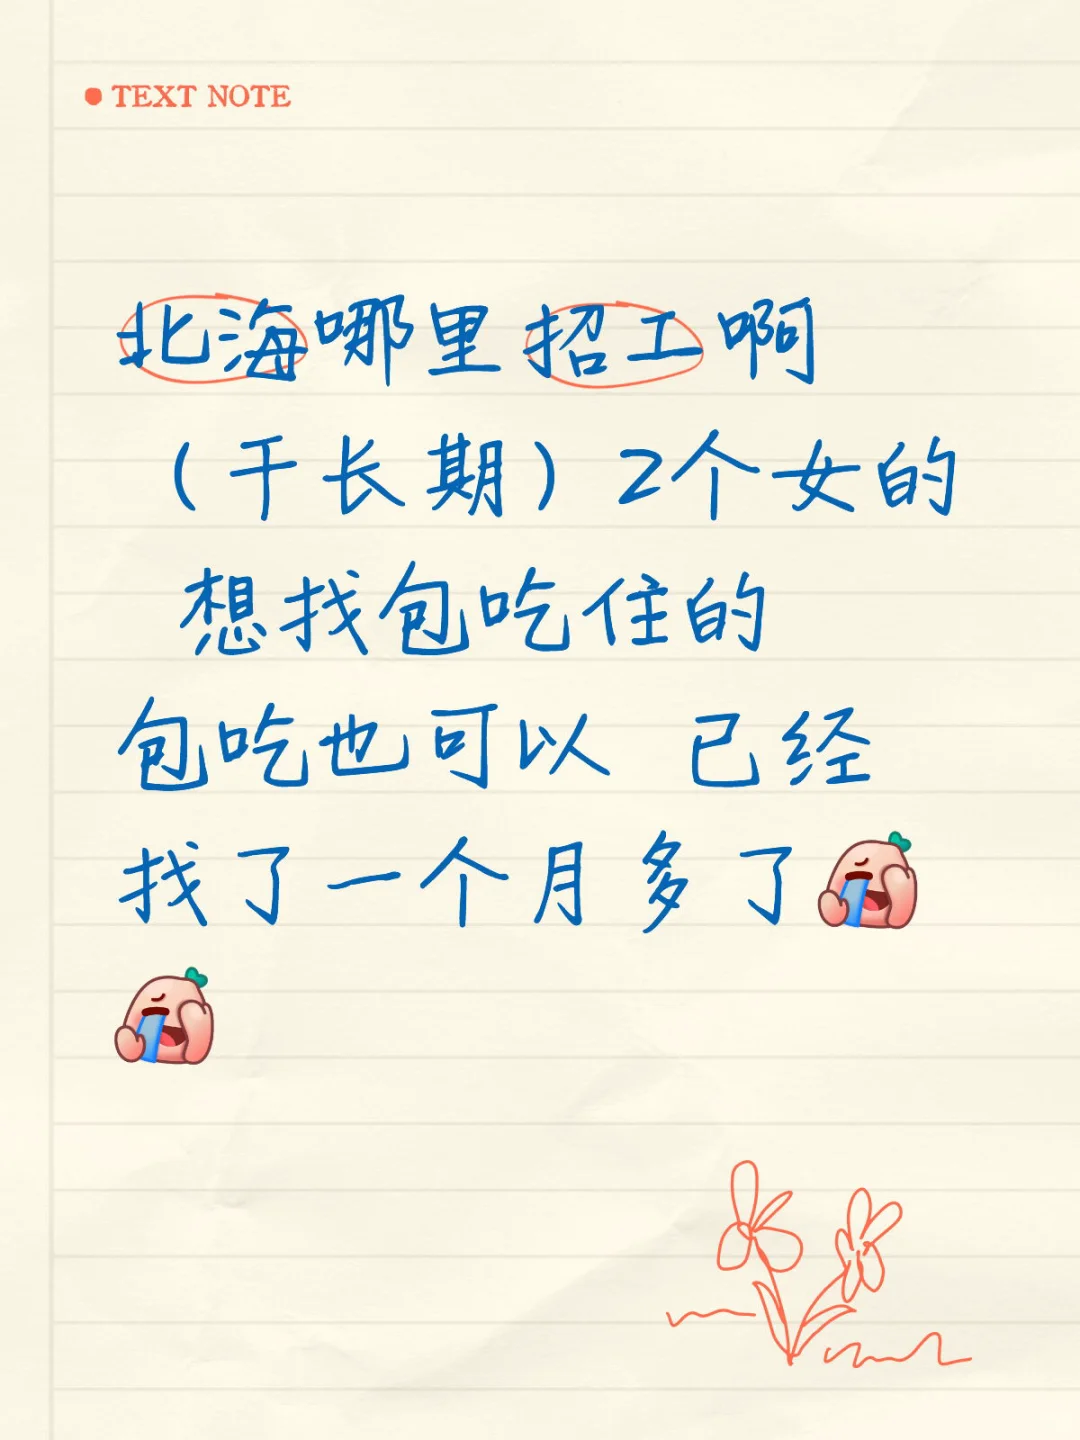 TEXT NOTE
北海哪里招工啊
（干长期）2个女的
想找包吃住的
包吃也可以 已经
找了一个月多了